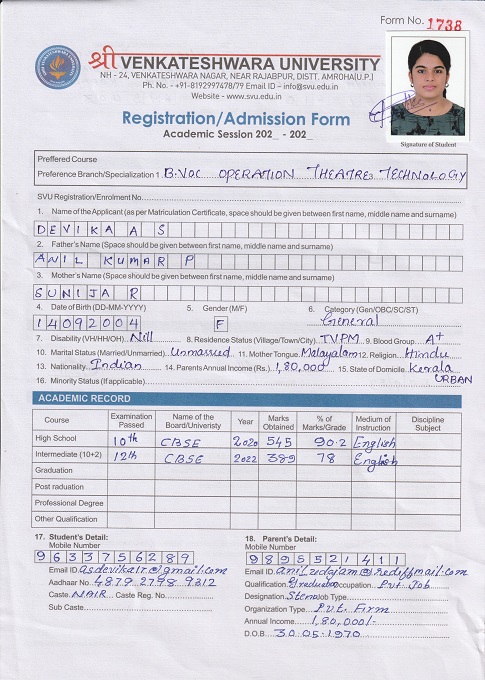 Form No. 1738
श्री VENKATESHWARA UNIVERSITY
NH - 24, VENKATESHWARA NAGAR, NEAR RAJABPUR, DISTT. AMROHA(U.P.)
Ph. No. - +91-8192997478/79 Email ID – info@svu.edu.in
Website - www.svu.edu.in
Registration/Admission Form
Academic Session 202_ - 202_
Signature of Student
Preffered Course
Preference Branch/Specialization 1. B.VOC OPERATION THEATRE3 TECHNOLOGY
SVU Registration/Enrolment No.
1. Name of the Applicant (as per Matriculation Certificate, space should be given between first name, middle name and surname)
DEVIKA A S
2. Father's Name (Space should be given between first name, middle name and surname)
ANIL KUMAR P
3. Mother's Name (Space should be given between first name, middle name and surname)
SUNIJA R
4. Date of Birth (DD-MM-YYYY) 5. Gender (M/F) 6. Category (Gen/OBC/SC/ST)
14092004 F General
7. Disability (VH/HH/OH) Nill 8. Residence Status (Village/Town/City) TVPM 9. Blood Group A+
10. Marital Status (Married/Unmarried) Unmarried 11. Mother Tongue Malayalam 12. Religion Hindu
13. Nationality Indian 14. Parents Annual Income (Rs.) 1,80,000 15. State of Domicile Kerala
16. Minority Status (If applicable) URBAN
ACADEMIC RECORD
Course Examination Passed Name of the Board/Univeristy Year Marks Obtained % of Marks/Grade Medium of Instruction Discipline Subject
High School 10th CBSE 2020 545 90.2 English
Intermediate (10+2) 12th CBSE 2022 389 78 English
Graduation
Post raduation
Professional Degree
Other Qualification
17. Student's Detail: 18. Parent's Detail:
Mobile Number Mobile Number
9633756289 9895521411
Email ID asdevika1r@gmail.com Email ID @rediffmail.com
Aadhar No. 4879 2798 9312 Qualification Graduation Occupation Pvt Job
Caste NAIR Caste Reg. No. Designation Steno Job Type
Sub Caste Organization Type Pvt. Firm
Annual Income 1,80,000/-
D.O.B. 30.05.1970